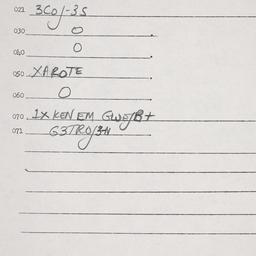 021 3Co/-3S
030 O
040 O
050 XAROTE
060 O
070 1X KEN EM GWE/B+
071 G3TRO/3H